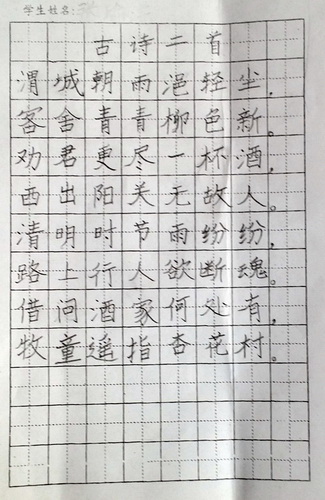 学生姓名:
古诗二首
渭城朝雨浥轻尘，
客舍青青柳色新。
劝君更尽一杯酒，
西出阳关无故人。
清明时节雨纷纷，
路上行人欲断魂。
借问酒家何处有，
牧童遥指杏花村。